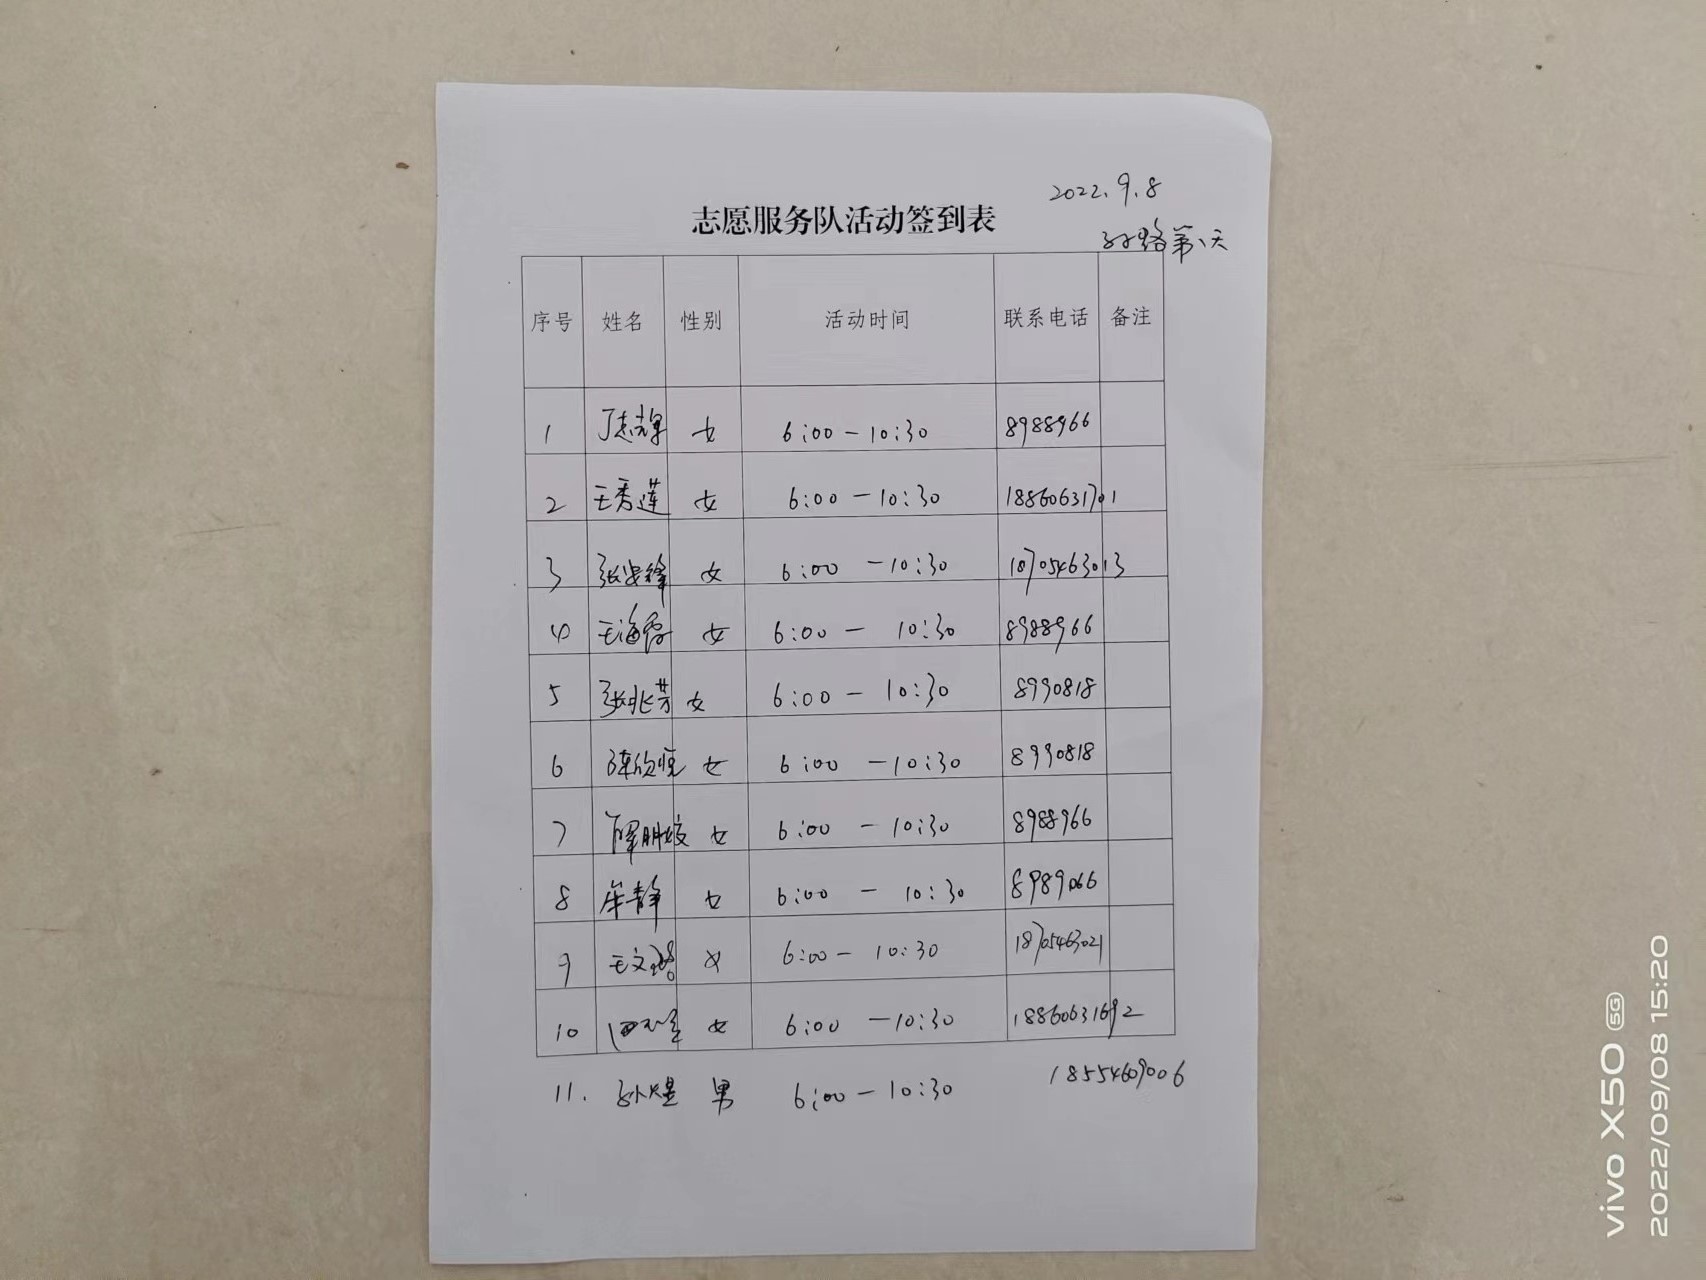 2022.9.8
志愿服务队活动签到表
路第、天
序号 姓名 性别 活动时间 联系电话 备注
1 丁志辉 女 6:00-10:30 8988966
2 王秀莲 女 6:00-10:30 18860631701
3 女 6:00-10:30 18705463013
4 王海霞 女 6:00-10:30 8988966
5 张兆芳 女 6:00-10:30 8990818
6 陈欣恒 女 6:00-10:30 8990818
7 女 6:00-10:30 8988966
8 牟静 女 6:00-10:30 8989066
9 女 6:00-10:30 18705463021
10 女 6:00-10:30 18860631692
11. 孙煜 男 6:00-10:30 18554609006
vivo X50 5G
2022/09/08 15:20